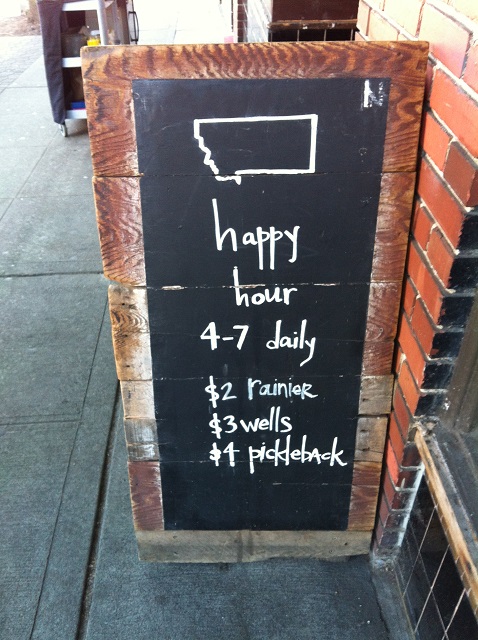 happy
hour
4-7 daily
$2 rainier
$3 wells
$4 pickleback